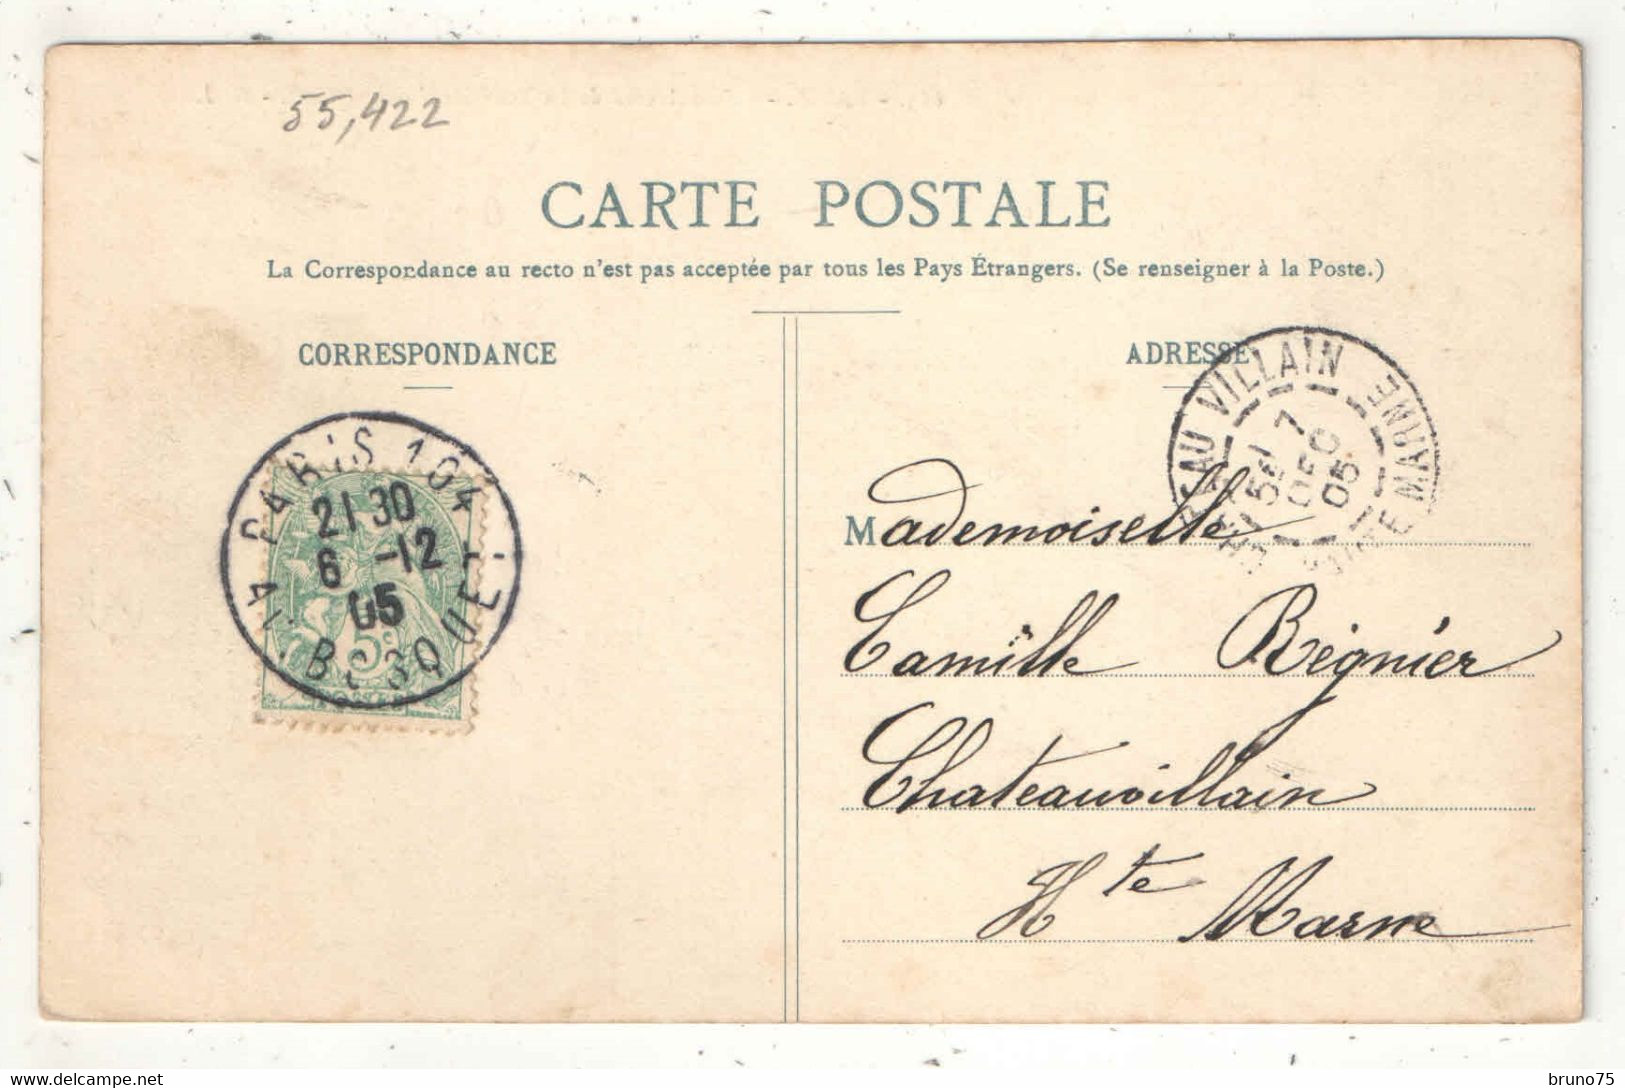 55,422
CARTE POSTALE
La Correspondance au recto n'est pas acceptée par tous les Pays Étrangers. (Se renseigner à la Poste.)
CORRESPONDANCE
ADRESSE
PARIS 104
21 30
6 -12
05
BOSQUET
5c
CHATEAU VILLAIN
7
DEC
05
HTE MARNE
Mademoiselle
Camille Régnier
Chateauvillain
Hte Marne
www.delcampe.net
bruno75